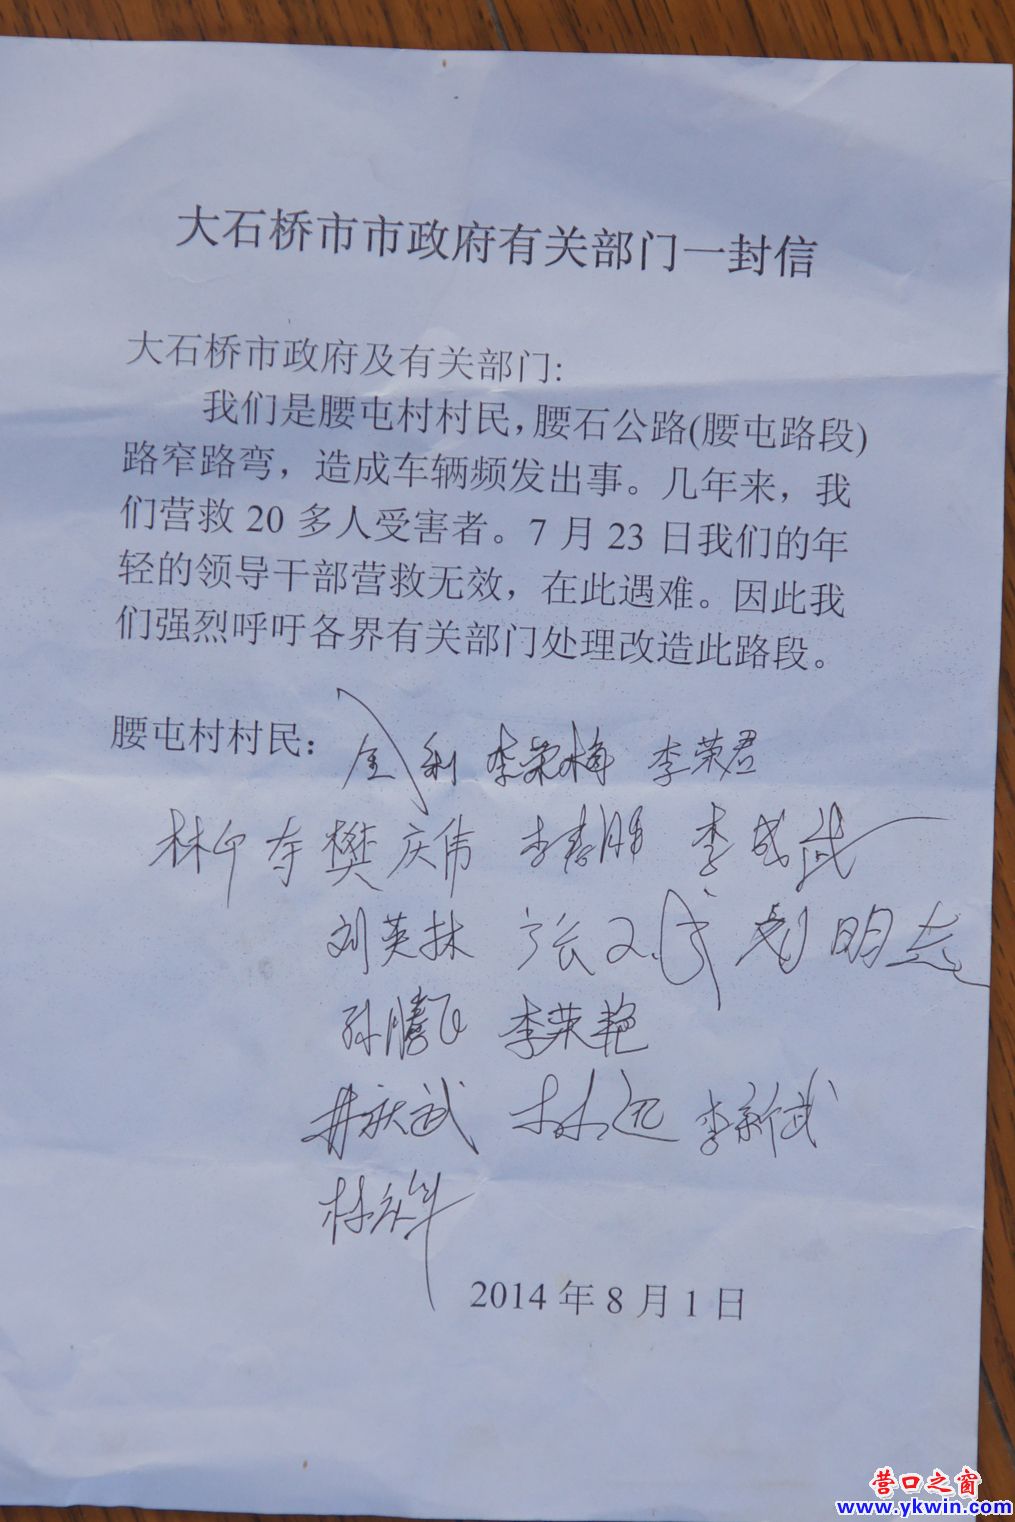 大石桥市市政府有关部门一封信
大石桥市政府及有关部门:
我们是腰屯村村民，腰石公路(腰屯路段)
路窄路弯，造成车辆频发出事。几年来，我
们营救 20 多人受害者。7 月 23 日我们的年
轻的领导干部营救无效，在此遇难。因此我
们强烈呼吁各界有关部门处理改造此路段。
腰屯村村民：金利 李荣梅 李荣君
樊庆伟 李春胜 李成武
刘英林 刘明志
孙腾飞 李荣艳
井庆武 林远 李新武
2014 年 8 月 1 日
营口之窗
www.ykwin.com